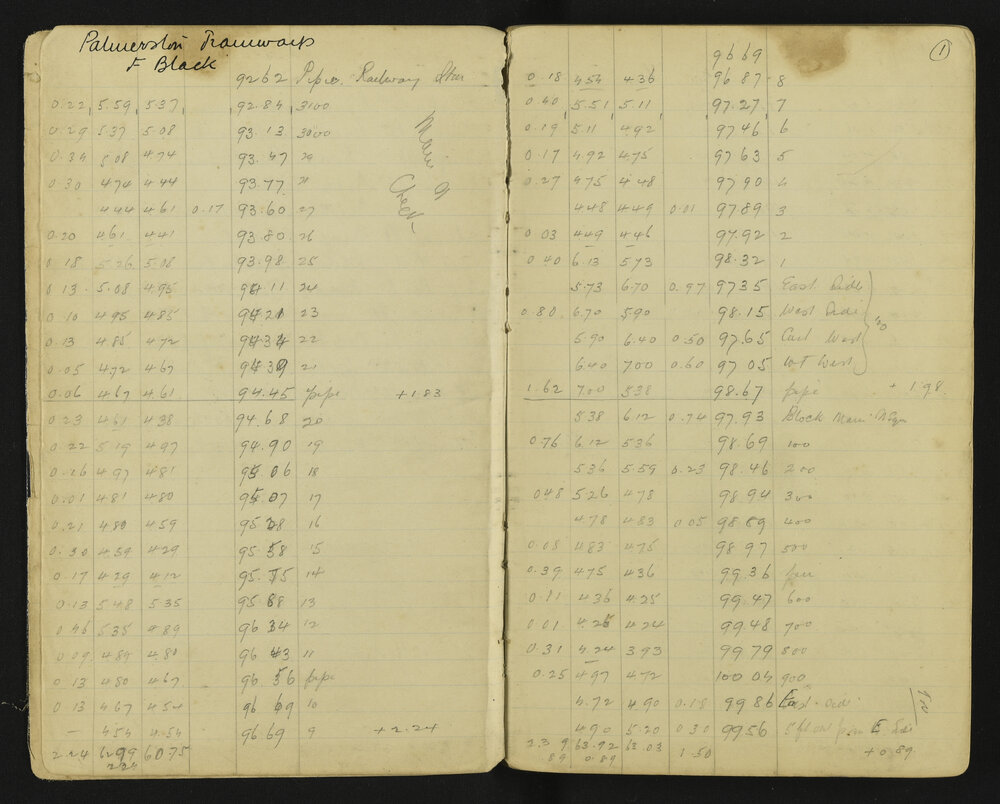 Palmerston Tramways
F Black
92 62 Pipe Railway
0.22 5.59 5.37 92.84 3100
0.29 5.37 5.08 93.13 3000
0.34 5.08 4.74 93.47 29
0.30 4.74 4.44 93.77
4.44 4.61 0.17 93.60 27
0.20 4.61 4.41 93.80 26
0.18 5.26 5.08 93.98 25
0.13 5.08 4.95 94.11 24
0.10 4.95 4.85 94.21 23
0.13 4.85 4.72 94.34 22
0.05 4.72 4.67 94.39 21
0.06 4.67 4.61 94.45 pipe +1.83
0.23 4.61 4.38 94.68 20
0.22 5.19 4.97 94.90 19
0.16 4.97 4.81 95.06 18
0.01 4.81 4.80 95.07 17
0.21 4.80 4.59 95.28 16
0.30 4.59 4.29 95.58 15
0.17 4.29 4.12 95.75 14
0.13 5.48 5.35 95.88 13
0.46 5.35 4.89 96.34 12
0.09 4.89 4.80 96.43 11
0.13 4.80 4.67 96.56 pipe
0.13 4.67 4.54 96.69 10
— 4.54 4.54 96.69 9 +2.24
2.24 62.99 60.75
2.24
Check
1
96 69
0.18 4.54 4.36 96 87 8
0.40 5.51 5.11 97.27 7
0.19 5.11 4.92 97 46 6
0.17 4.92 4.75 97 63 5
0.27 4.75 4.48 97 90 4
4.48 4.49 0.01 97.89 3
0.03 4.49 4.46 97.92 2
0.40 6.13 5.73 98.32 1
5.73 6.70 0.97 97.35 East Side
0.80 6.70 5.90 98.15 West Side
5.90 6.40 0.50 97.65 East West
6.40 7.00 0.60 97.05 West
1.62 7.00 5.38 98.67 pipe +1.98
5.38 6.12 0.74 97.93 Block Main
0.76 6.12 5.36 98.69 100
5.36 5.59 0.23 98.46 200
0.48 5.26 4.78 98.94 300
4.78 4.83 0.05 98.89 400
0.08 4.83 4.75 98.97 500
0.39 4.75 4.36 99.36
0.11 4.36 4.25 99.47 600
0.01 4.25 4.24 99.48 700
0.31 4.24 3.93 99.79 800
0.25 4.97 4.72 100.04 900
4.72 4.90 0.18 99 86 East Side
4.90 5.20 0.30 99 56 from E Side
2.39 63.92 63.03 1.50 +0.89
89 0.89